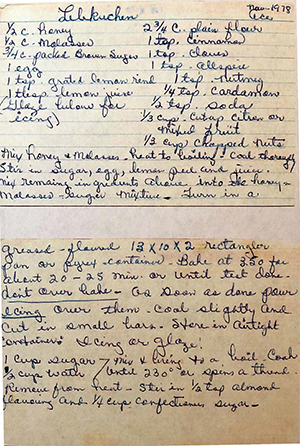 Lebkuchen
Nov-1978
½ C. honey
2¾ C. plain flour
½ C. Molasses
1 tsp. Cinnamon
¾ C. packed Brown Sugar
1 tsp. Cloves
1 egg
1 tsp. allspice
1 tsp. grated lemon rind
1 tsp. Nutmeg
1 tbsp. lemon juice
¼ tsp. Cardamon
(Glaze below for
½ tsp. Soda
icing)
⅓ cup. Cut up citron or
mixed fruit
⅓ cup Chopped Nuts
Mix honey & Molasses. Heat to boiling. Cool thoroughly
Stir in Sugar, egg, lemon peel and juice.
Mix remaining ingredients above into the honey-
Molasses - Sugar Mixture - Turn in a
greased - floured 13 x 10 x 2 rectangler
pan or pyrex - container - Bake at 350 for
about 20 - 25 min or until test done-
dont over bake - as soon as done pour
Icing over them - Cool slightly and
Cut in small bars - Store in airtight
Containers
Icing or Glaze:
1 cup Sugar
½ cup water
Mix & bring to a boil. Cook
until 230° or spins a thread.
Remove from heat - Stir in ½ tsp almond
flavoring and ¼ cup Confectioners sugar -